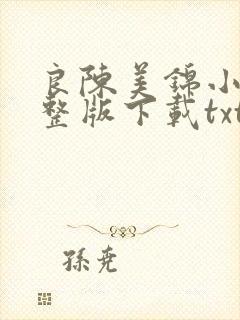 良陳美錦小
整版下載txt
孫尭